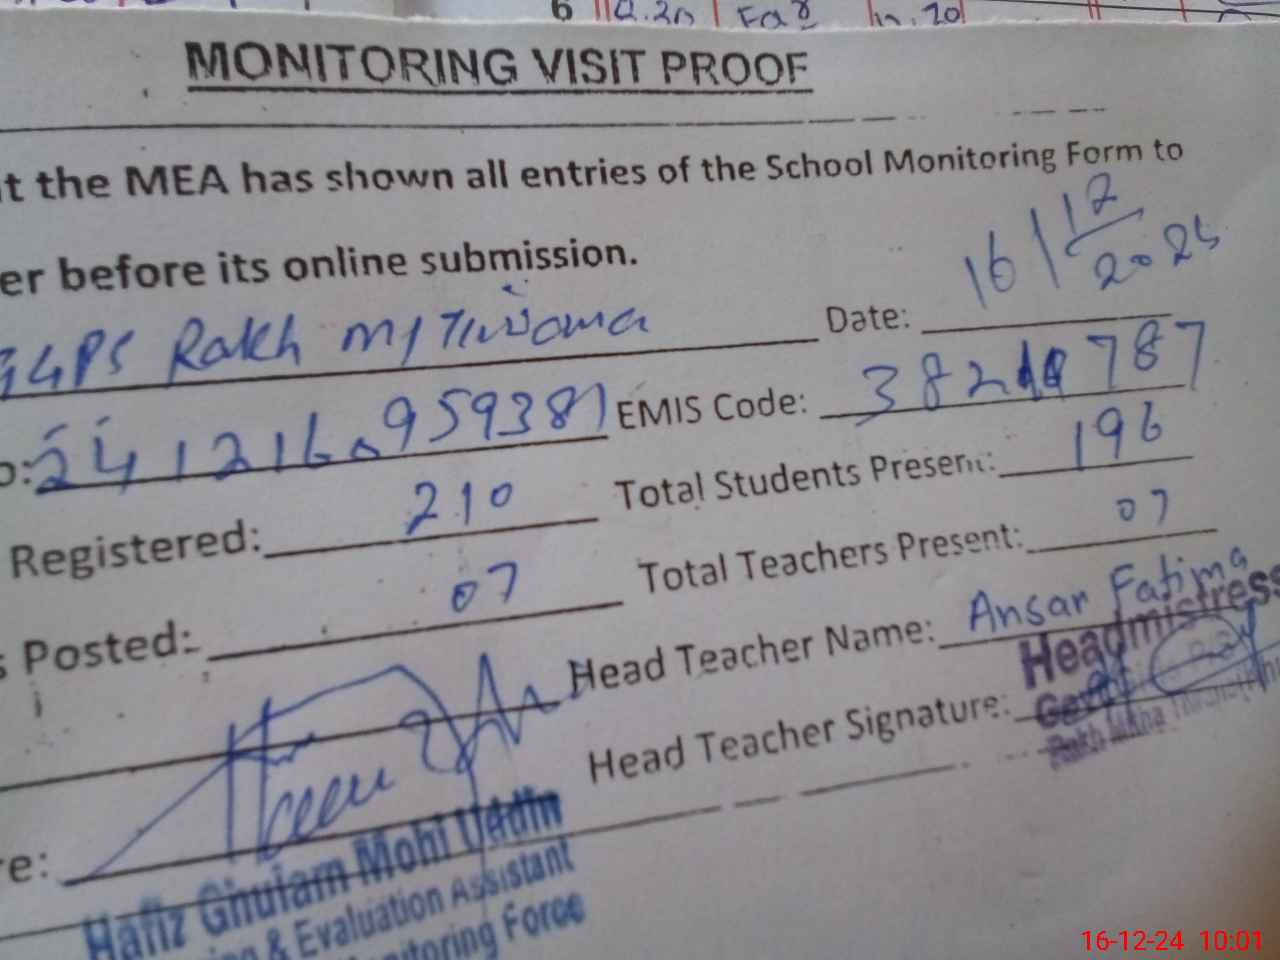 6 11.20 Far 11.20
MONITORING VISIT PROOF
t the MEA has shown all entries of the School Monitoring Form to
er before its online submission.
GGPS Rakh Date: 16/12/2024
o: 241216 959381 EMIS Code: 382 787
Registered: 210 Total Students Present: 196
Posted: 07 Total Teachers Present: 07
Head Teacher Name: Ansar Fatima
Headmistress
Head Teacher Signature:
re:
Hafiz Ghulam Mohi Uddin
ng & Evaluation Assistant
nitoring Force
16-12-24 10:01